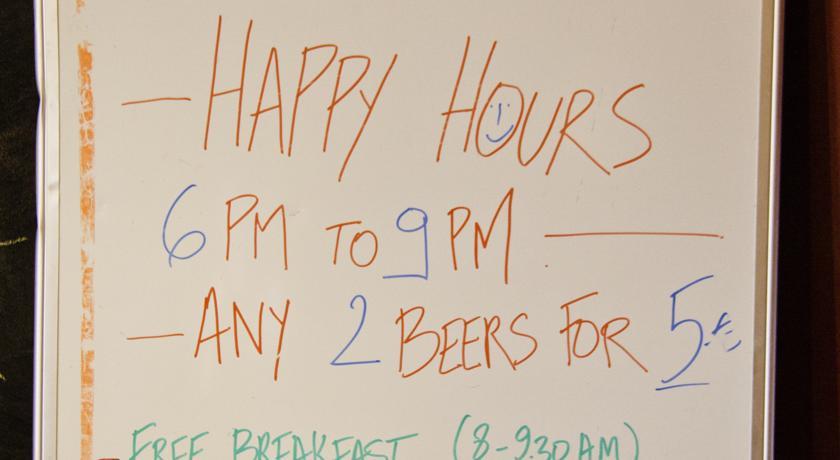 - HAPPY HOURS
6 PM TO 9 PM —
- ANY 2 BEERS FOR 5€
FREE BREAKFAST (8-9.30 AM)